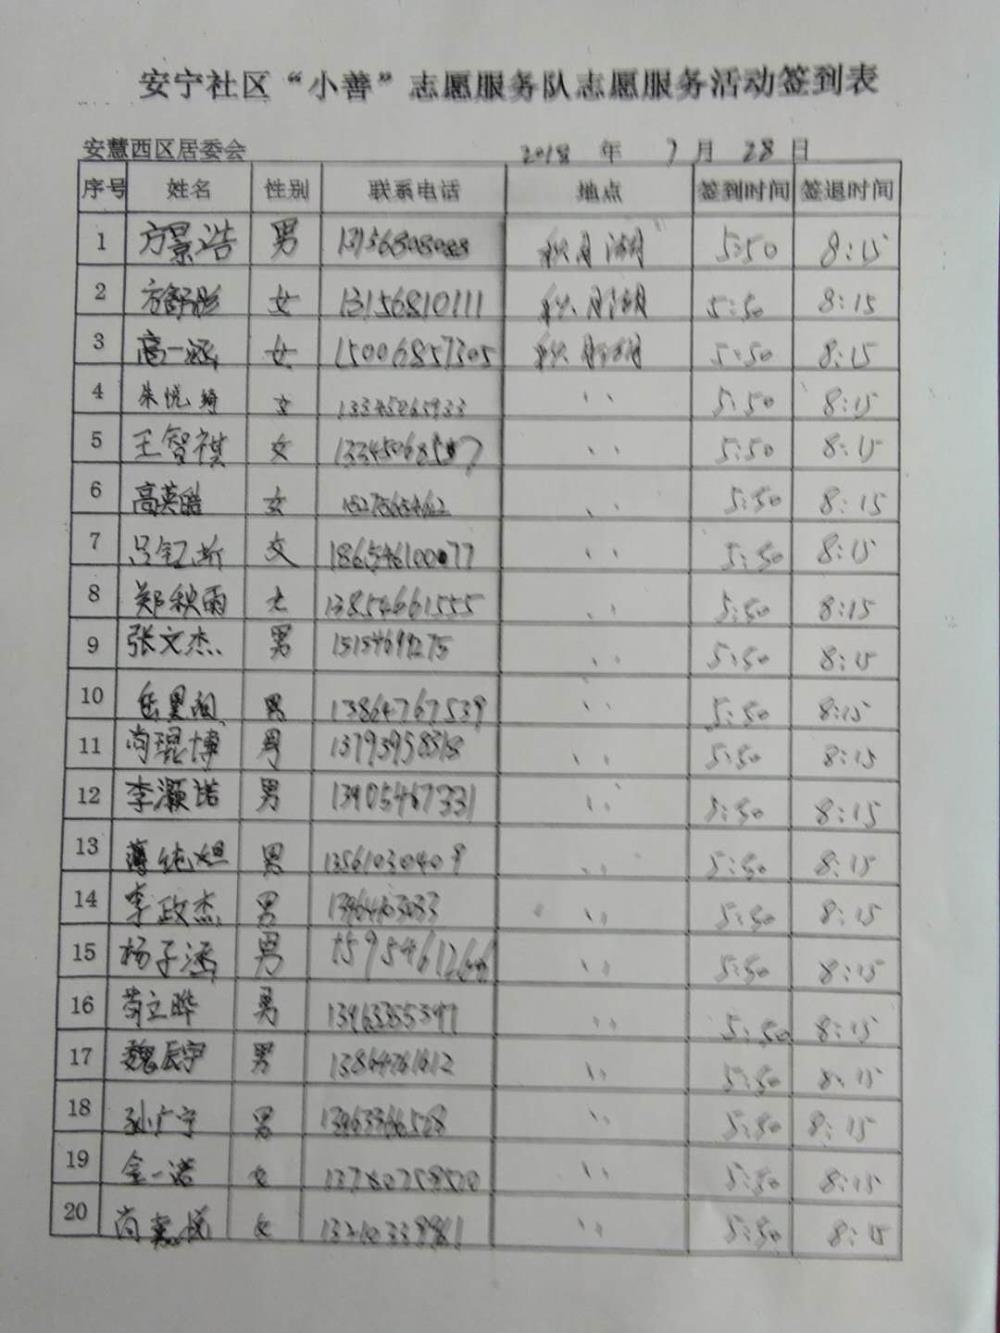 安宁社区“小善”志愿服务队志愿服务活动签到表
安慧西区居委会 2018 年 7 月 28 日
序号 姓名 性别 联系电话 地点 签到时间 签退时间
1 方景浩 男 秋月湖 5:50 8:15
2 方舒彤 女 13156810111 秋月湖 5:50 8:15
3 高一涵 女 15006857305 秋月湖 5:50 8:15
4 朱悦绮 女 13345265933 、、 5:50 8:15
5 王智祺 女 、、 5:50 8:15
6 高英皓 女 、、 5:50 8:15
7 女 18654610077 、、 5:50 8:15
8 郑秋雨 女 13854661555 、、 5:50 8:15
9 张文杰 男 、、 5:50 8:15
10 男 13864767539 、、 5:50 8:15
11 尚琨博 男 13793958818 、、 5:50 8:15
12 李灏诺 男 13905467331 、、 5:50 8:15
13 男 13561030409 、、 5:50 8:15
14 李政杰 男 、、 5:50 8:15
15 杨子涵 男 、、 5:50 8:15
16 苟立晔 男 13963355397 、、 5:50 8:15
17 魏辰宇 男 13864761612 、、 5:50 8:15
18 孙广宇 男 、、 5:50 8:15
19 金一诺 女 、、 5:50 8:15
20 女 、、 5:50 8:15